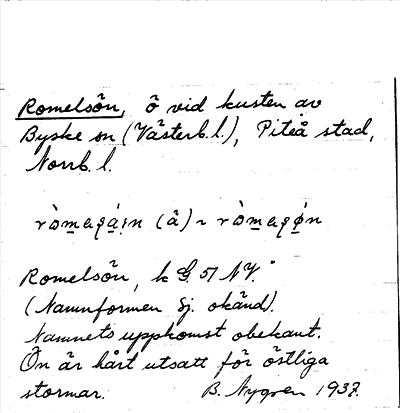 Romelsön, ö vid kusten av
Byske sn (Västerb. l.), Piteå stad,
Norrb. l.
(å) ~
Romelsön, k G. 51 NV.
(Namnformen Sj. okänd).
Namnets uppkomst obekant.
Ön är hårt utsatt för östliga
stormar. B. Nygren 1937.